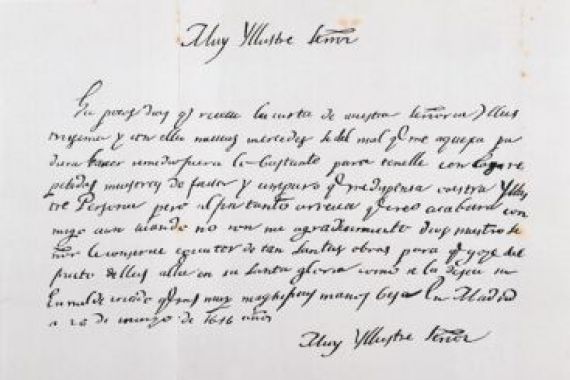 Muy Yllustre Señor
Ha pocos dias q̃ recevi la carta de vuestra Señoria Yllus
trysima y con ella nuevas mercedes. Si del mal q̃ me aquexa pu
diera haver remedio fuera lo bastante para tenelle con las re
petidas muestras de favor y amparo q̃ me dispensa vuestra Yllus
tre Persona pero al fin tanto arrecia q̃ creo acabara con
migo aun cuando no con mi agradecimiento Dios nuestro Se
ñor le conserve executor de tan santas obras para q̃ goze del
fruto dellas alla en su santa gloria como se la desea su
humilde criado q̃ sus muy magnificas manos besa En Madrid
a 26 de marzo de 1616 años
Muy Yllustre Señor